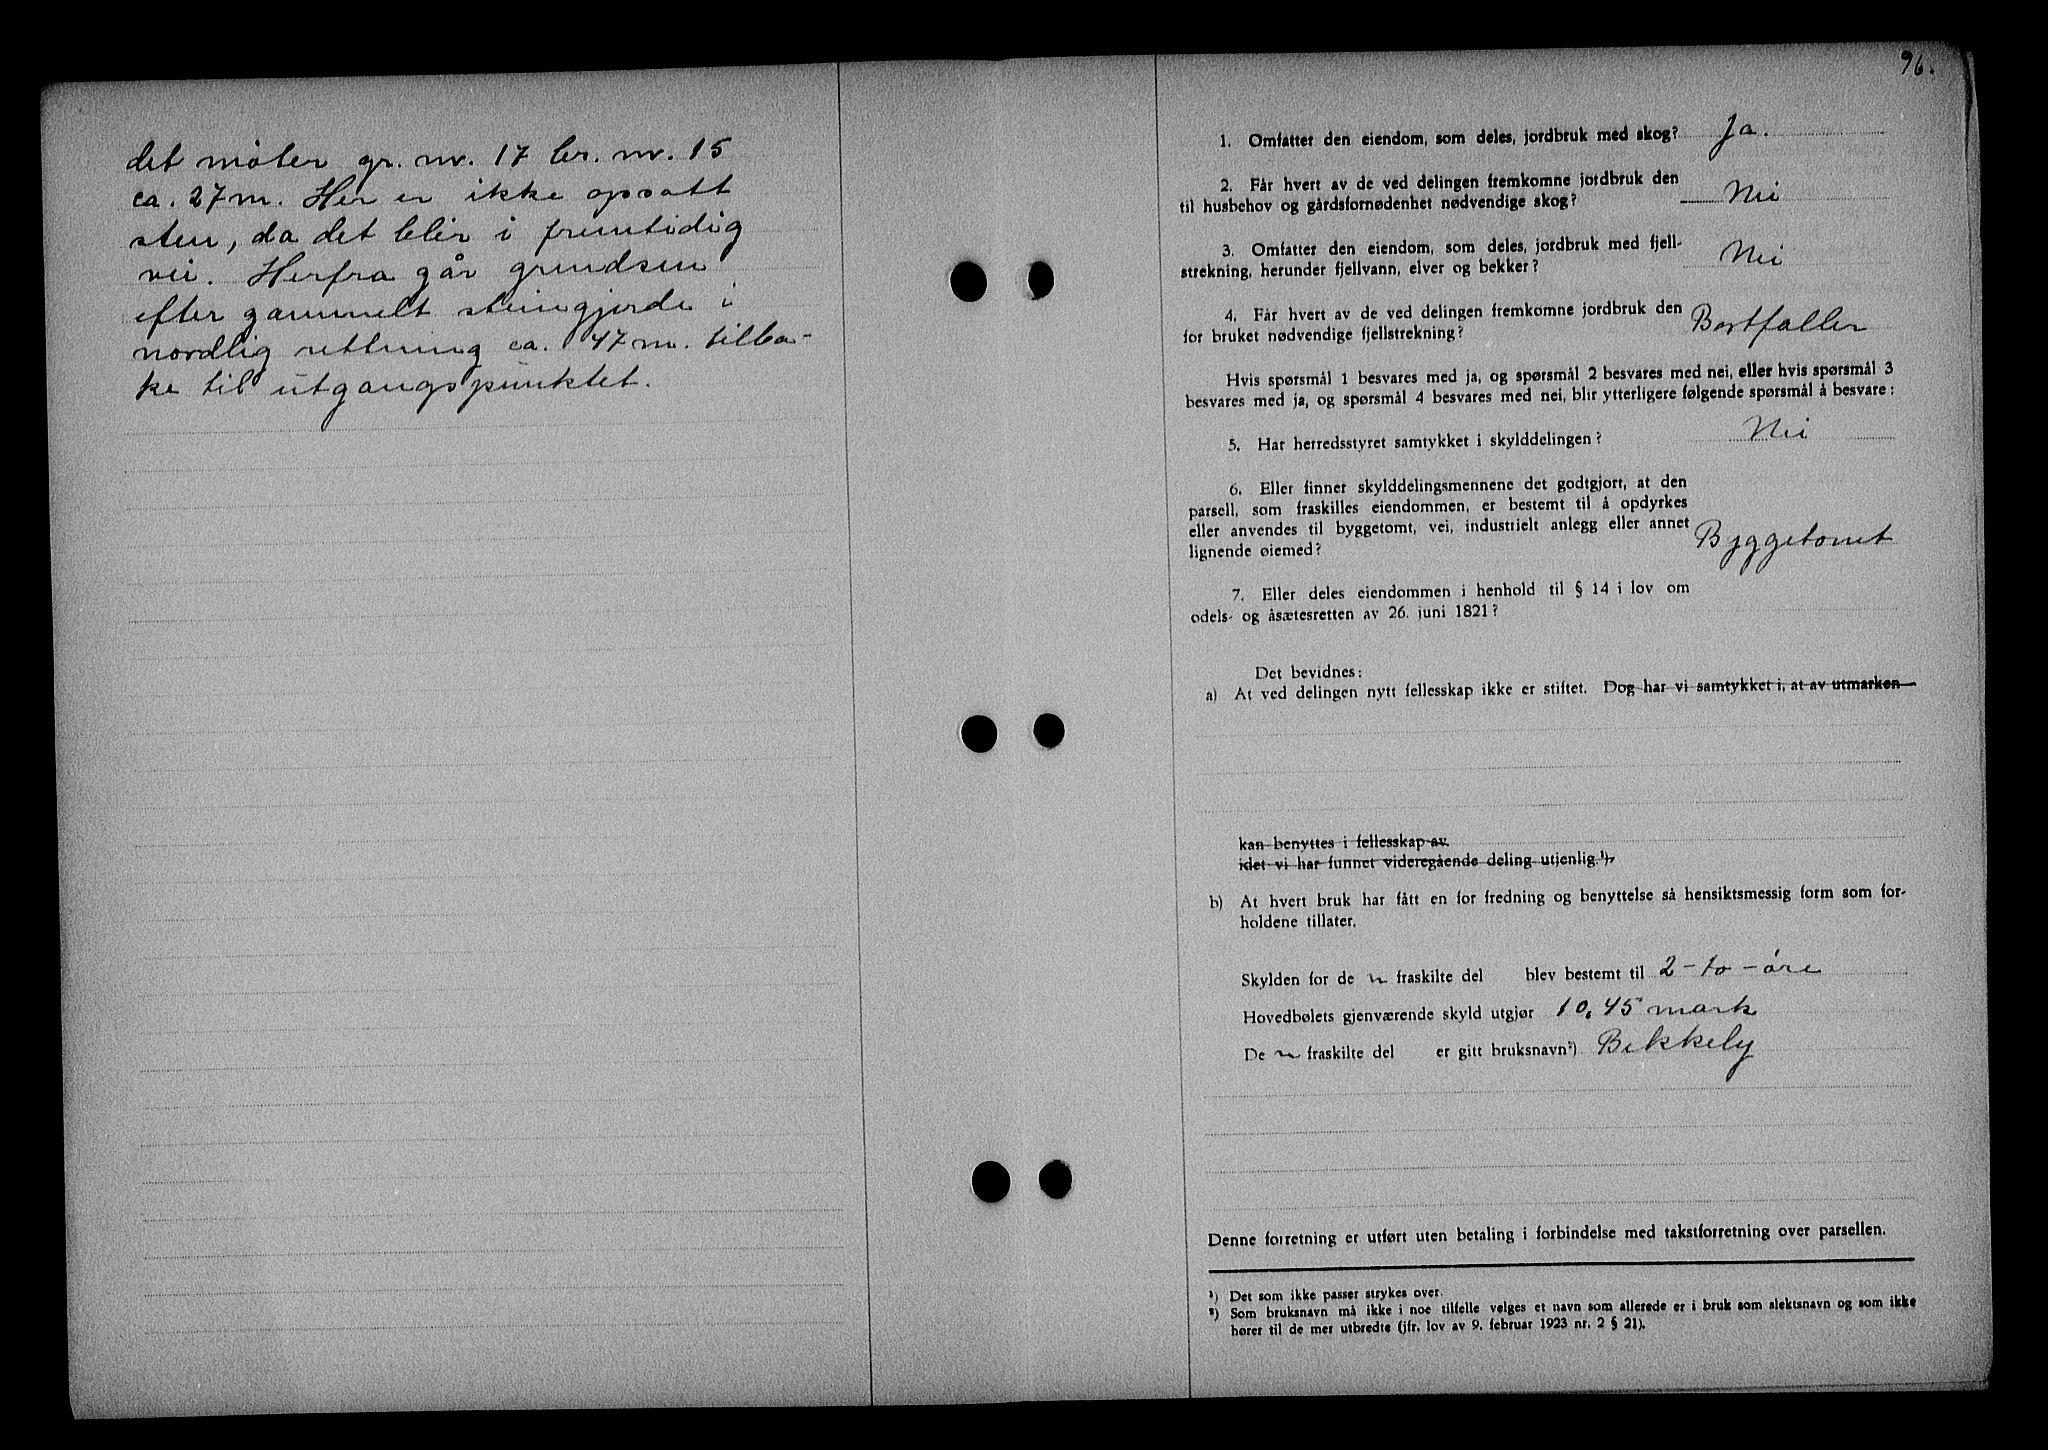 det møter gr. nr. 17 br. nr. 15
ca. 27 m. Her er ikke opsatt
sten, da det blir i fremtidig
vei. Herfra går grendsen
efter gammelt steingjerde i
nordlig rettning ca. 47 m. tilba-
ke til utgangspunktet.
96.
1. Omfatter den eiendom, som deles, jordbruk med skog? Ja.
2. Får hvert av de ved delingen fremkomne jordbruk den
til husbehov og gårdsfornødenhet nødvendige skog? Nei
3. Omfatter den eiendom, som deles, jordbruk med fjell-
strekning, herunder fjellvann, elver og bekker? Nei
4. Får hvert av de ved delingen fremkomne jordbruk den
for bruket nødvendige fjellstrekning? Bortfaller
Hvis spørsmål 1 besvares med ja, og spørsmål 2 besvares med nei, eller hvis spørsmål 3
besvares med ja, og spørsmål 4 besvares med nei, blir ytterligere følgende spørsmål å besvare:
5. Har herredsstyret samtykket i skylddelingen? Nei
6. Eller finner skylddelingsmennene det godtgjort, at den
parsell, som fraskilles eiendommen, er bestemt til å opdyrkes
eller anvendes til byggetomt, vei, industrielt anlegg eller annet
lignende øiemed? Byggetomt
7. Eller deles eiendommen i henhold til § 14 i lov om
odels- og åsætesretten av 26. juni 1821?
Det bevidnes:
a) At ved delingen nytt fellesskap ikke er stiftet. Dog har vi samtykket i, at av utmarken
kan benyttes i fellesskap av
idet vi har funnet videregående deling utjenlig.¹)
b) At hvert bruk har fått en for fredning og benyttelse så hensiktsmessig form som for-
holdene tillater.
Skylden for den fraskilte del blev bestemt til 2 - to - øre
Hovedbølets gjenværende skyld utgjør 10,45 mark
Den fraskilte del er gitt bruksnavn²) Bekkely
Denne forretning er utført uten betaling i forbindelse med takstforretning over parsellen.
¹) Det som ikke passer strykes over.
²) Som bruksnavn må ikke i noe tilfelle velges et navn som allerede er i bruk som slektsnavn og som ikke
hører til de mer utbredte (jfr. lov av 9. februar 1923 nr. 2 § 21).